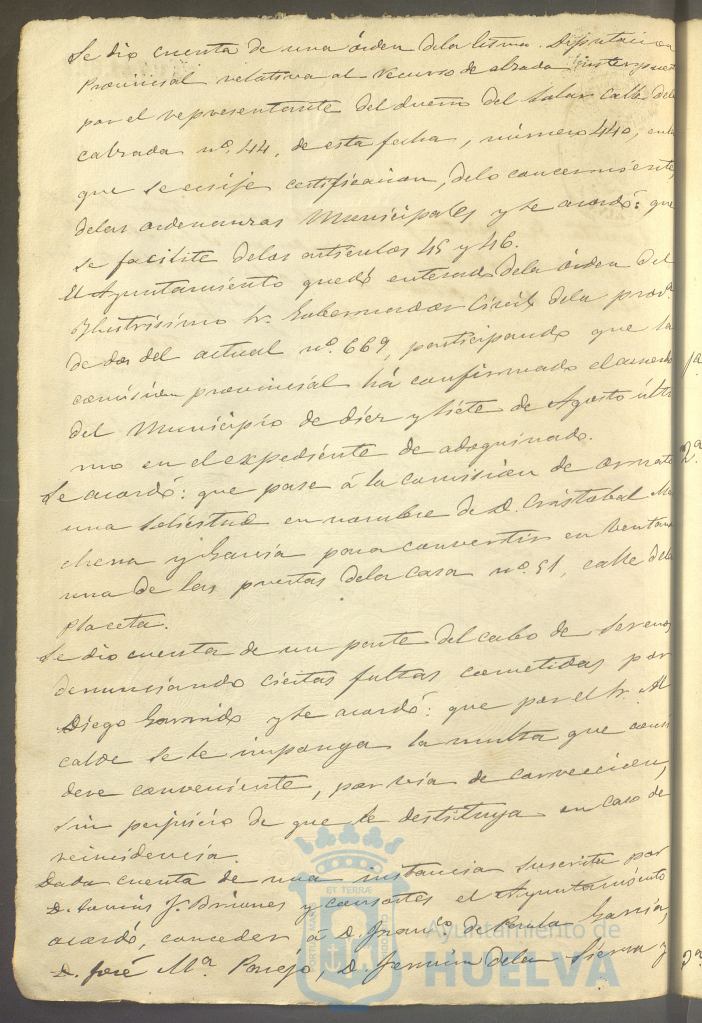 Se dio cuenta de una órden dela Iltma. Diputacion
Provincial relativa al recurso de alzada interpuest
por el representante del dueño del solar calle dela
calzada nº. 44, de esta fecha, número 440, en la
que se exije certificacion, delo concerniente,
delas ordenanzas Municipales y se acordó: que
se facilite delos artículos 45 y 46.
El Ayuntamiento quedó enterado dela órden del
Ylustrissimo Sr. Gobernador Civil dela provª.
de dos del actual nº. 669, participando que la
comision provincial há confirmado el acuerdo
del Municipio de diez y siete de Agosto últi
mo en el expediente de adoquinado.
Se acordó: que pase á la comision de ornato
una solicitud en nombre de D. Cristobal Ma
chena y Garcia para convertir en ventana
una de las puertas dela casa nº. 51, calle dela
Placeta.
Se dio cuenta de un parte del cabo de serenos
denunciando ciertas faltas cometidas por
Diego Garrido y se acordó: que por el Sr. Al
calde se le imponga la multa que consi
dere conveniente, por via de correccion,
sin perjuicio de que le destituya en caso de
reincidencia.
Dada cuenta de una instancia suscrita por
D. J. Briones y consortes el Ayuntamiento
acordó, conceder á D. Franco. de Paula Garcia,
D. José Mª Parejo, D. Fermin dela Sierra y
1ª
2ª
3ª
ET TERRÆ
Ayuntamiento de
HUELVA